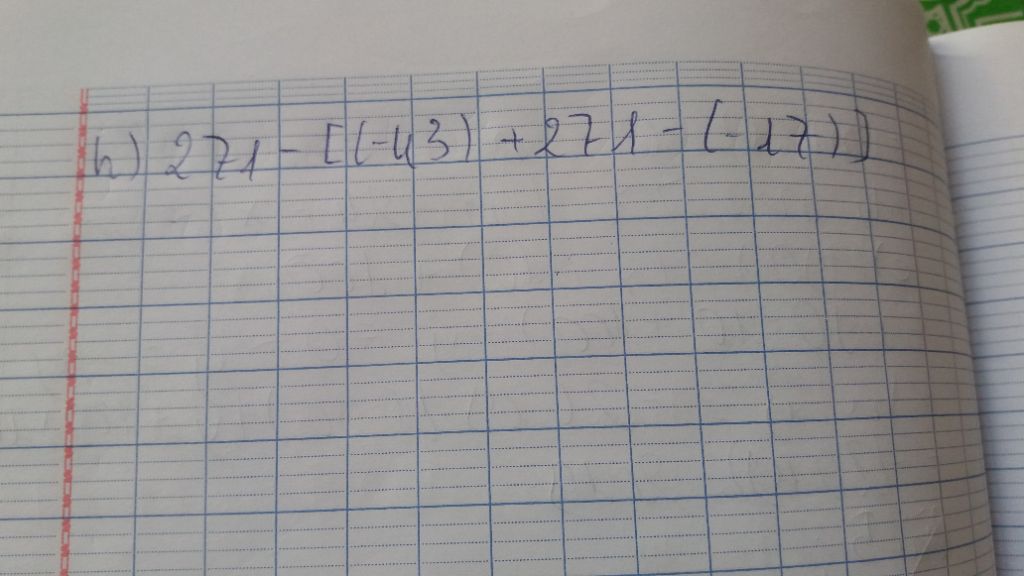 h) 271 - [(-43) + 271 - (-17)]